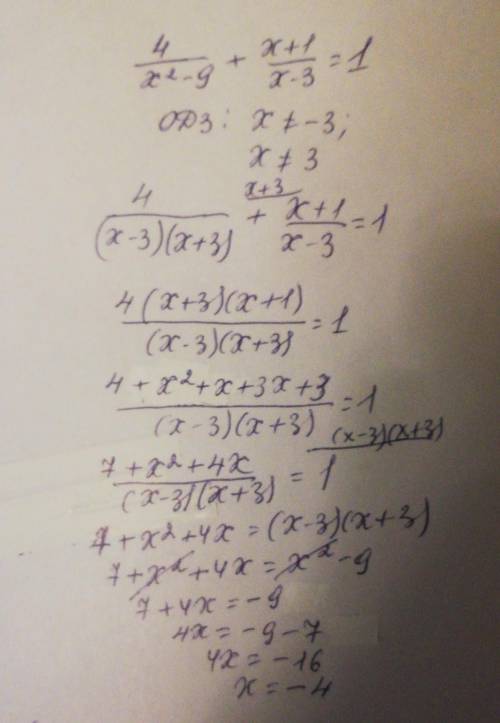 4/(x²-9) + (x+1)/(x-3) = 1
ОДЗ: x ≠ -3;
x ≠ 3
4/((x-3)(x+3)) + x+3 (x+1)/(x-3) = 1
4(x+3)(x+1)/((x-3)(x+3)) = 1
(4+x²+x+3x+3)/((x-3)(x+3)) = 1 (x-3)(x+3)
(7+x²+4x)/((x-3)(x+3)) = 1
7+x²+4x = (x-3)(x+3)
7+x²+4x = x²-9
7+4x = -9
4x = -9-7
4x = -16
x = -4